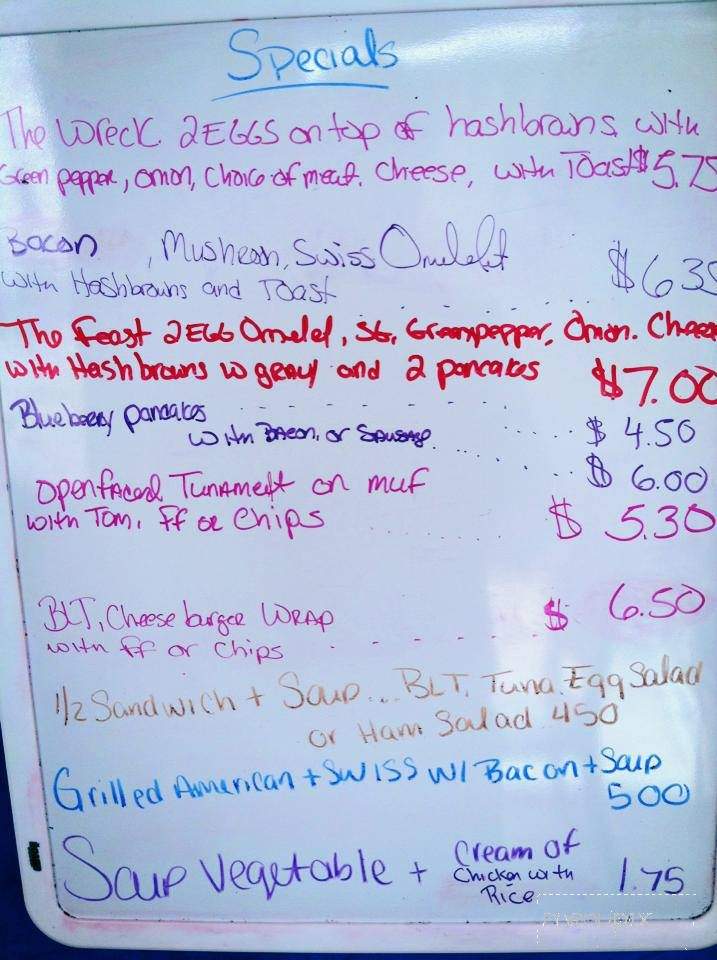 Specials
The Wreck 2EGGS on top of hashbrowns with
Green pepper, onion, choice of meat. cheese, with Toast $5.75
Bacon , Mushroom, Swiss Omelet
with Hashbrowns and Toast $6.35
The Feast 2EGG Omelet, Greenpepper, Onion. Cheese
with Hashbrowns w gravy and 2 pancakes $7.00
Blueberry pancakes $4.50
with Bacon, or Sausage $6.00
Openfaced Tunamelt on muf
with Tom, ff or Chips $5.30
BLT, Cheese burger WRAP $6.50
with ff or Chips
1/2 Sandwich + Soup... BLT, Tuna, Egg Salad
or Ham Salad 450
Grilled American + Swiss w/ Bacon + Soup
500
Soup Vegetable + Cream of
Chicken with
Rice 1.75